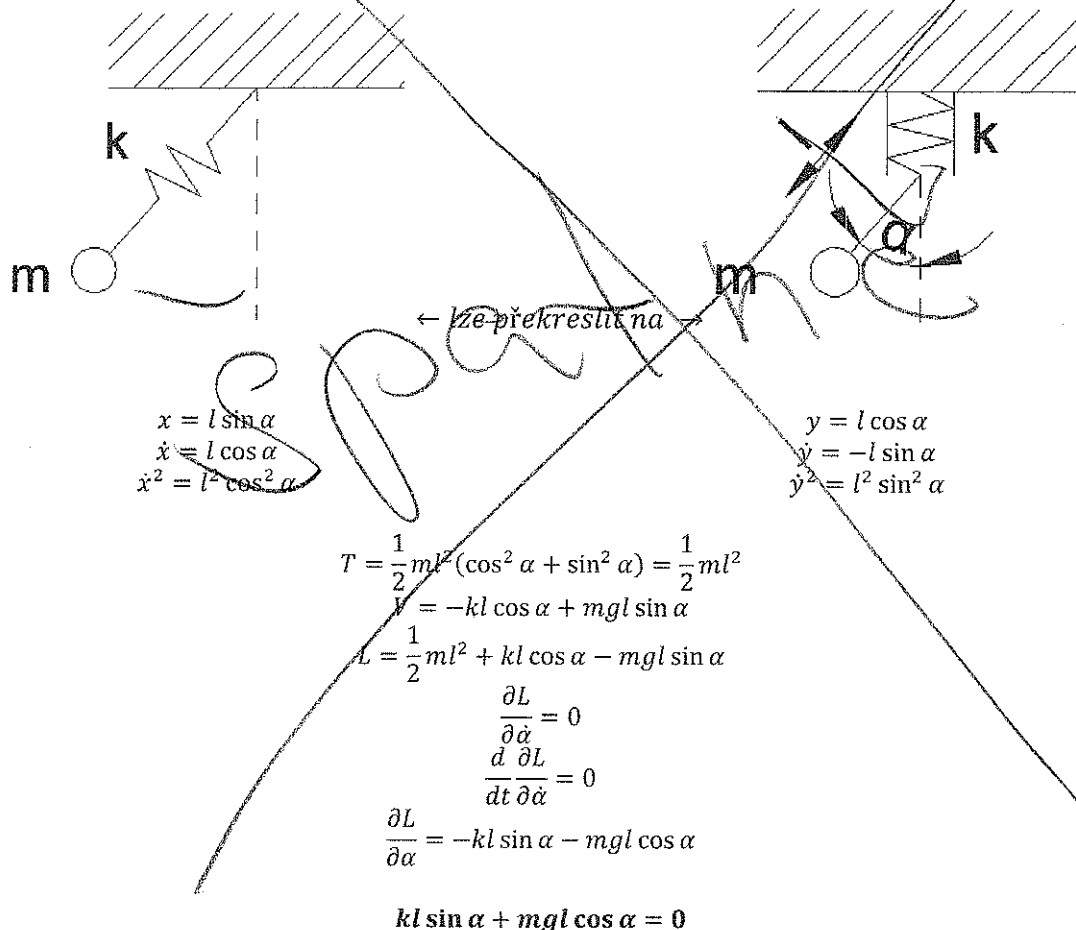 k
k
α
m
m
← lze překreslit na →
Špatně
x = l sin α
ẋ = l cos α
ẋ² = l² cos² α
y = l cos α
ẏ = −l sin α
ẏ² = l² sin² α
T = 1/2 ml²(cos² α + sin² α) = 1/2 ml²
V = −kl cos α + mgl sin α
L = 1/2 ml² + kl cos α − mgl sin α
∂L/∂α̇ = 0
d/dt ∂L/∂α̇ = 0
∂L/∂α = −kl sin α − mgl cos α
kl sin α + mgl cos α = 0